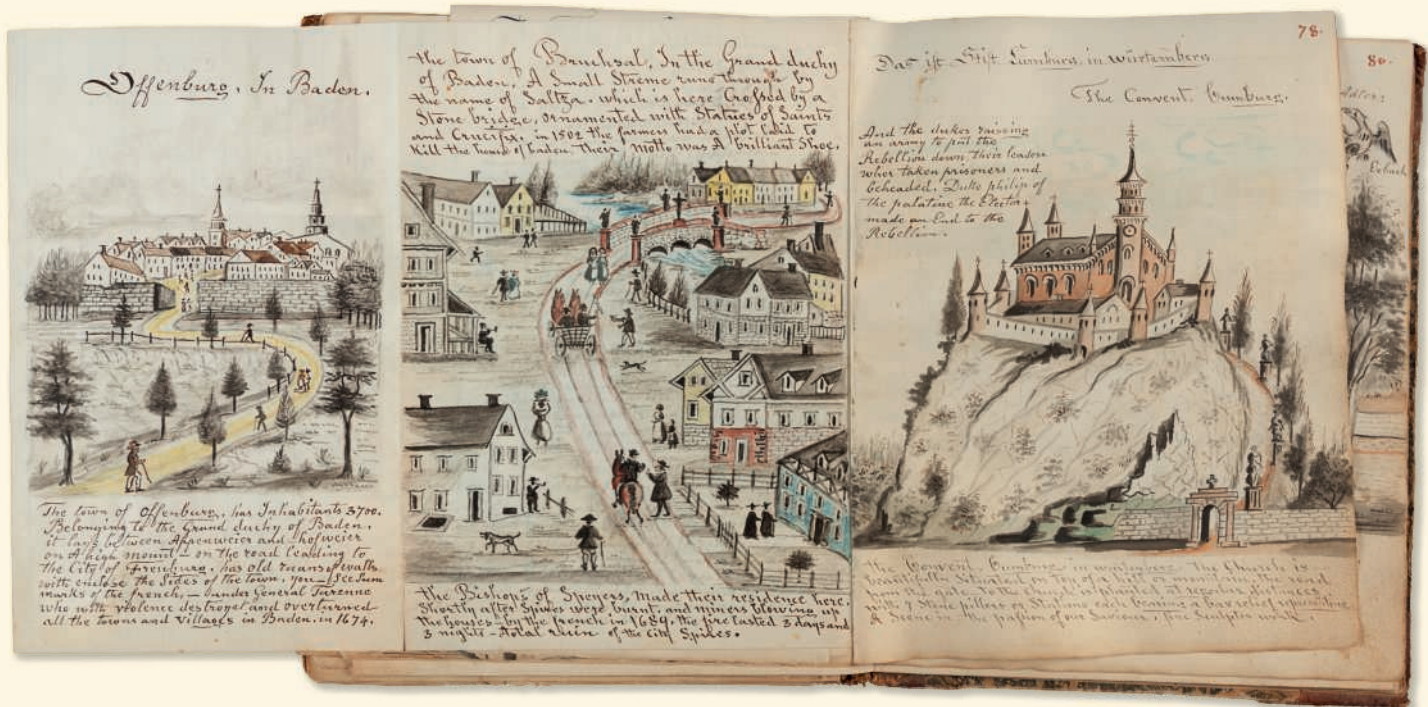 Offenburg, In Baden.
The town of Offenburg, has Inhabitants 3700.
Belonging to the Grand duchy of Baden.
it lays between Appenweier and hofweier
on A high mount – on the road leading to
the City of freuburg, has old ruans of walls
with enclose the Sides of the town, you – See Sum
marks of the french, – under General Turenne
who with violence destroyed and overturned
all the towns and Villages in Baden. in 1674.
the town of Bruchsal, In the Grand duchy
of Baden, A Small Streme runs through by
the name of Saltza. which is here Crossed by a
Stone bridge, ornamented with Statues of Saints
and Crucifix, in 1502 the farmers had a plot laid to
Kill the house of baden. Their motto was A brilliant Shoe.
the Bishops of Speyers, made their residence here.
Shortly after Spires were burnt, and miners blowing up
the houses – by the french in 1689, the fire lasted 3 days and
3 nights – A total ruin of the City Spires.
78.
Das ist Stift in würtemberg
The Convent,
And the dukes raising
an army to put the
Rebellion down, their leaders
wher taken prisoners and
beheaded. Duke philip of
the palatine the Elector
made an End to the
Rebellion.
the Convent The Church is
beautifully Situated on top of a hill or mount, the road
at regular distances
with 7 Stone pillors or each bearing a
A Scene in the passion of our Saviour, fine Sculptor work.
80.